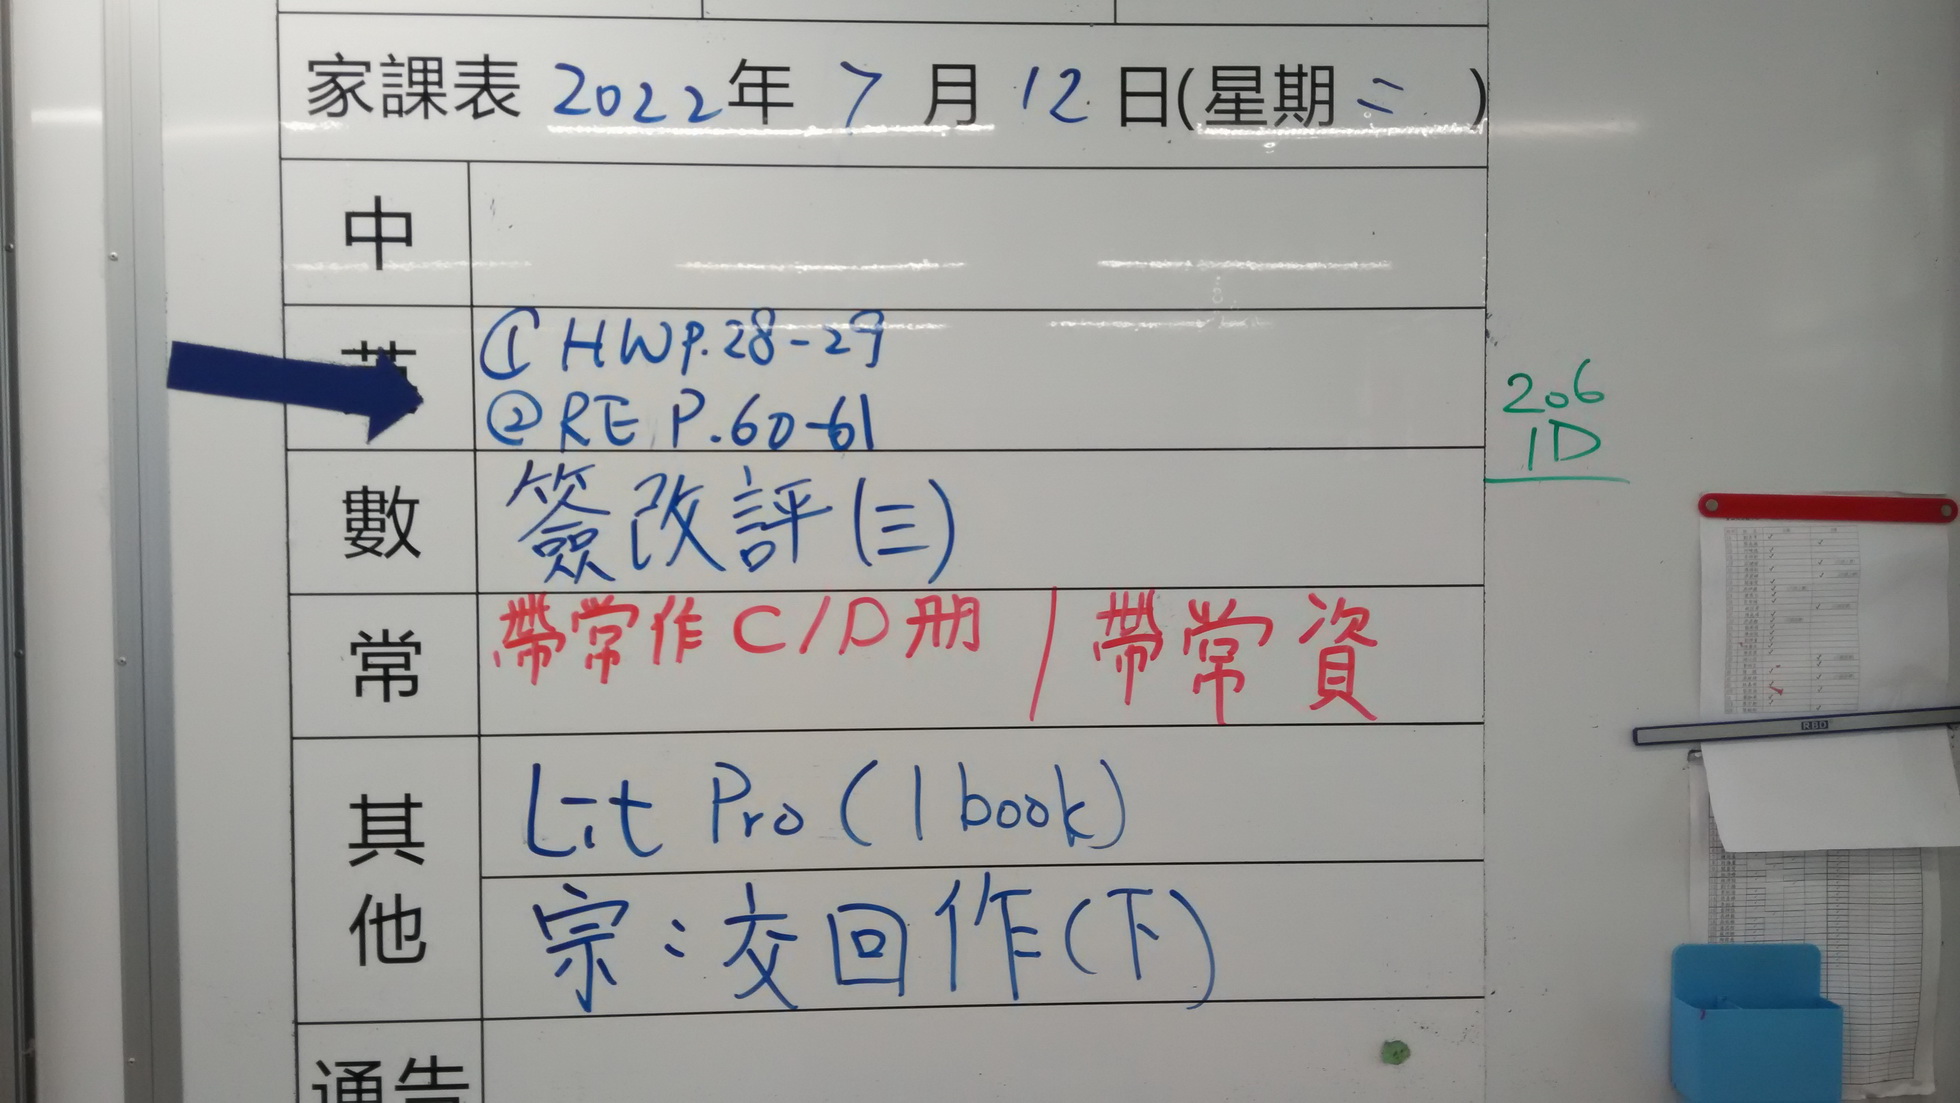 家課表 2022年 7月 12日(星期二)
中
① HW P.28-29
② RE P.60-61
數 簽改評(三)
常 帶常作C/D册 / 帶常資
其他 Lit Pro (1 book)
宗：交回作(下)
通告
206
1D
RBD